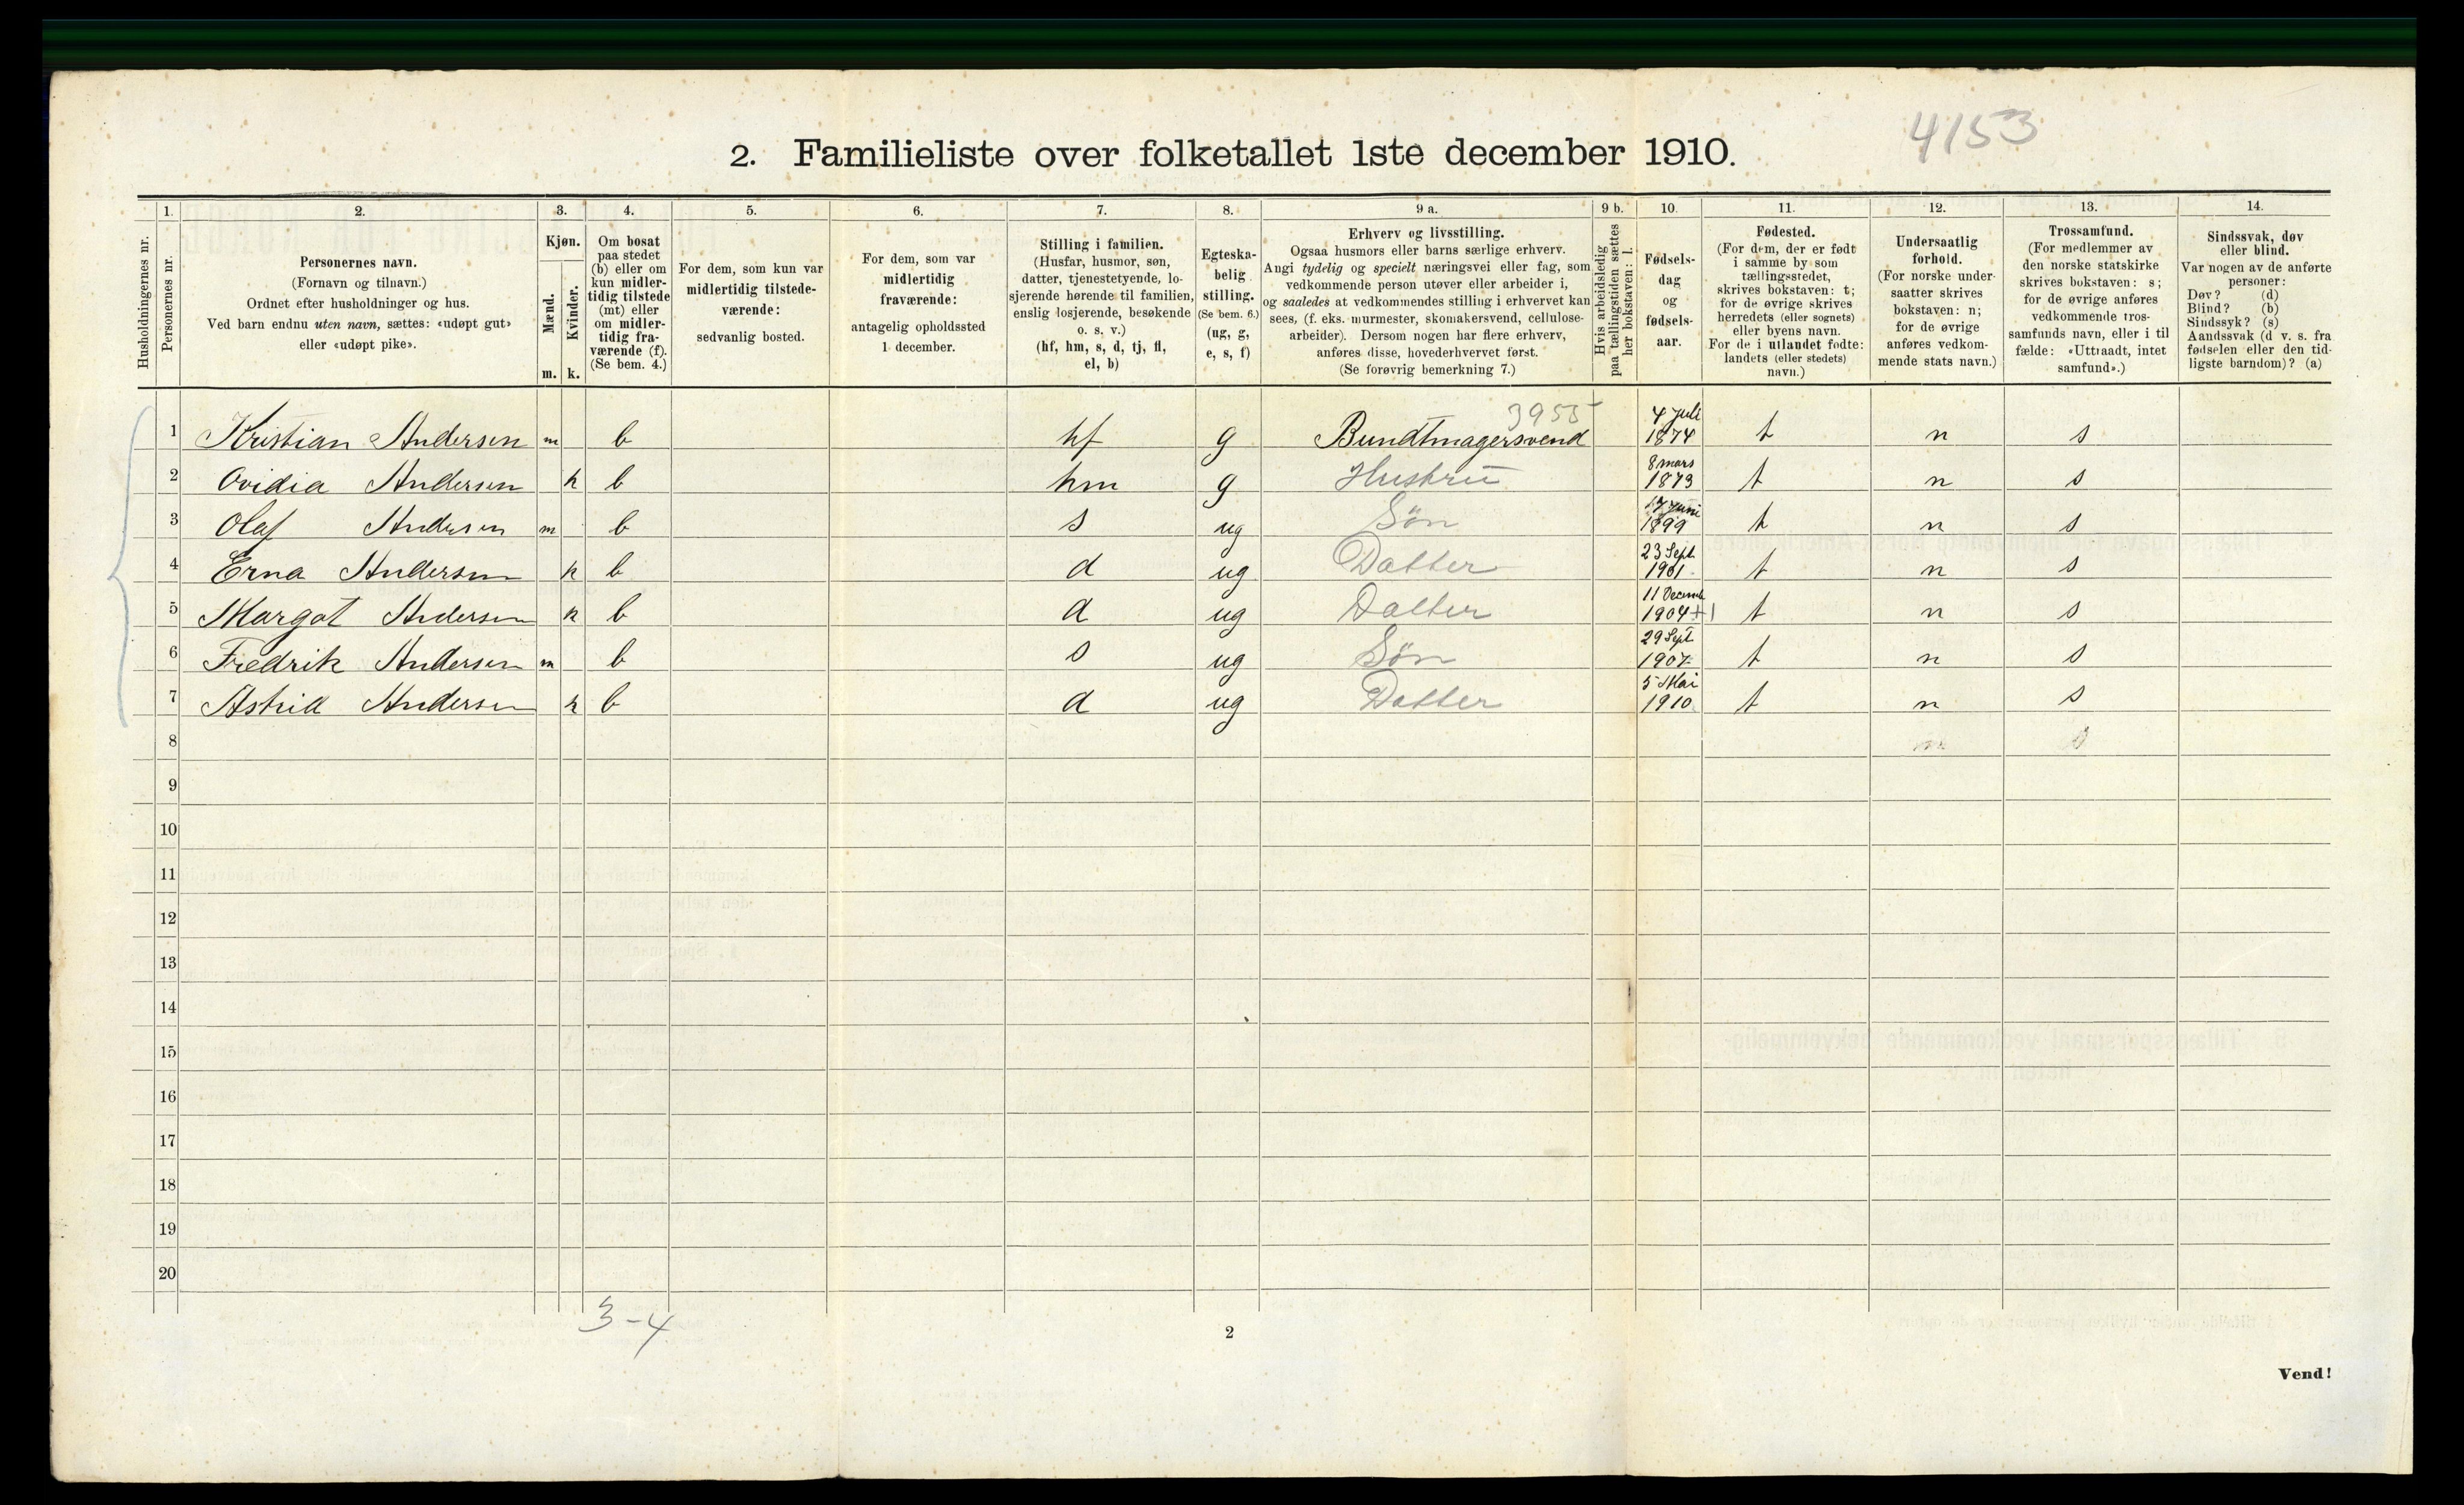 4153
2. Familieliste over folketallet 1ste december 1910.
Husholdningernes nr.
1.
Personernes nr.
2.
Personernes navn.
(Fornavn og tilnavn.)
Ordnet efter husholdninger og hus.
Ved barn endnu uten navn, sættes: «udøpt gut»
eller «udøpt pike».
3.
Kjøn.
Mænd.
Kvinder.
m. k.
4.
Om bosat
paa stedet
(b) eller om
kun midler-
tidig tilstede
(mt) eller
om midler-
tidig fra-
værende (f).
(Se bem. 4.)
5.
For dem, som kun var
midlertidig tilstede-
værende:
sedvanlig bosted.
6.
For dem, som var
midlertidig
fraværende:
antagelig opholdssted
1 december.
7.
Stilling i familien.
(Husfar, husmor, søn,
datter, tjenestetyende, lo-
sjerende hørende til familien,
enslig losjerende, besøkende
o. s. v.)
(hf, hm, s, d, tj, fl,
el, b)
8.
Egteska-
belig
stilling.
(Se bem. 6.)
(ug, g,
e, s, f)
9 a.
Erhverv og livsstilling.
Ogsaa husmors eller barns særlige erhverv.
Angi tydelig og specielt næringsvei eller fag, som
vedkommende person utøver eller arbeider i,
og saaledes at vedkommendes stilling i erhvervet kan
sees, (f. eks. murmester, skomakersvend, cellulose-
arbeider). Dersom nogen har flere erhverv,
anføres disse, hovederhvervet først.
(Se forøvrig bemerkning 7.)
9 b.
Hvis arbeidsledig
paa tællingstiden sættes
her bokstaven: l.
10.
Fødsels-
dag
og
fødsels-
aar.
11.
Fødested.
(For dem, der er født
i samme by som
tællingsstedet,
skrives bokstaven: t;
for de øvrige skrives
herredets (eller sognets)
eller byens navn.
For de i utlandet fødte:
landets (eller stedets)
navn.)
12.
Undersaatlig
forhold.
(For norske under-
saatter skrives
bokstaven: n;
for de øvrige
anføres vedkom-
mende stats navn.)
13.
Trossamfund.
(For medlemmer av
den norske statskirke
skrives bokstaven: s;
for de øvrige anføres
vedkommende tros-
samfunds navn, eller i til
fælde: «Uttraadt, intet
samfund».)
14.
Sindssvak, døv
eller blind.
Var nogen av de anførte
personer:
Døv? (d)
Blind? (b)
Sindssyk? (s)
Aandssvak (d v. s. fra
fødselen eller den tid-
ligste barndom)? (a)
3955
1 Kristian Andersen m b hf g Bundtmagersvend 4 juli 1874 t n s
2 Ovidia Andersen k b hm g Hustru 8 mars 1873 t n s
3 Olaf Andersen m b s ug Søn 17 juni 1899 t n s
4 Erna Andersen k b d ug Datter 23 Sept. 1901 t n s
5 Margot Andersen k b d ug Datter 11 Decemb 1904 +1 t n s
6 Fredrik Andersen m b s ug Søn 29 Sept. 1907 t n s
7 Astrid Andersen k b d ug Datter 5 Mai 1910 t n s
8
9
10
11
12
13
14
15
16
17
18
19
20
3-4
2
Vend!